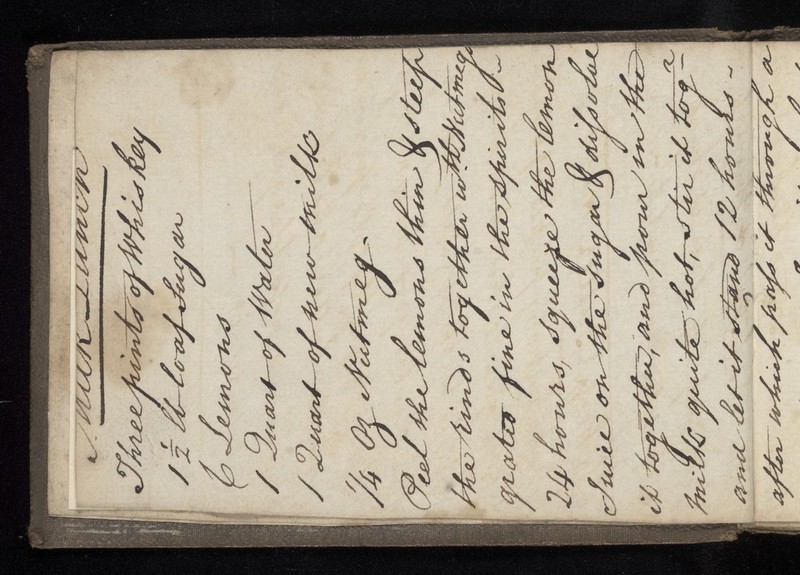 Milk Punch
Three pints of Whiskey
1 ½ lb loaf Sugar
6 Lemons
1 Quart of Water
1 Quart of new milk
1/4 Oz Nutmeg.
Peel the lemons thin & steep
the rinds together wth Nutmeg
grated fine in the spirits -
24 hours, squeeze the lemon
Juice on the sugar & dissolve
it together, and pour in the
milk quite hot, stir it togr
and let it stand 12 hours -
after which pass it through a